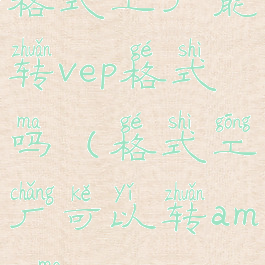 格式工厂能
zhuǎn gé shì
转vep格式
ma gé shì gōng
吗（格式工
chǎng kě yǐ zhuǎn
厂可以转am